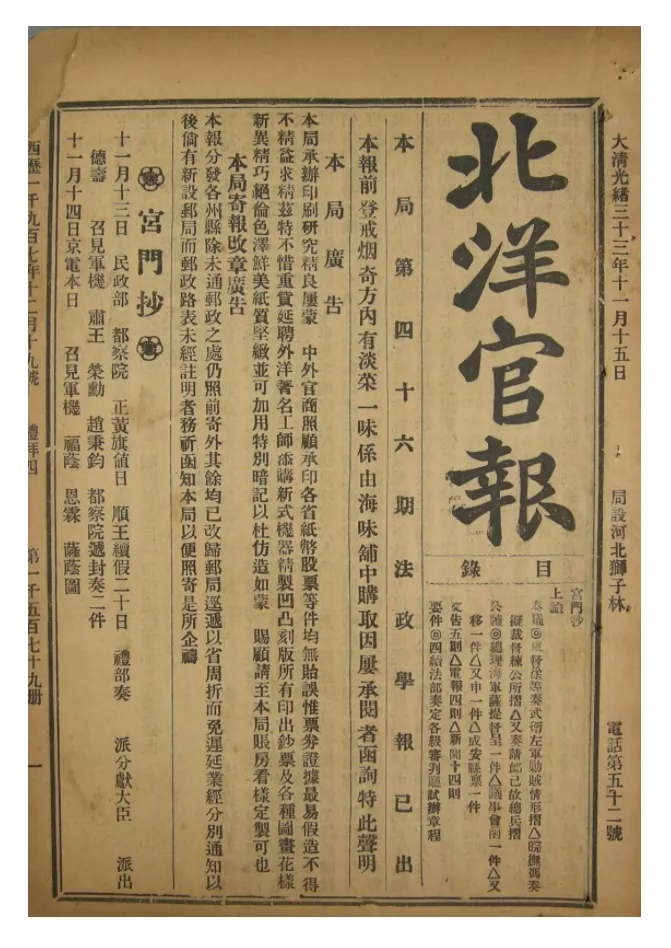 大清光緒三十三年十一月十五日
局設河北獅子林
電話第五十二號
北洋官報
目錄
宮門抄
上諭
奏議◎東督徐等奏武衛左軍勦賊情形摺△皖撫馮奏
擬裁督練公所摺△又奏請卹已故總兵摺
公牘◎總理海軍薩提督呈一件△議事會函一件△又
移一件△又申一件△成安縣稟一件
文告五則△電報四則△新聞十四則
要件◎四續法部奏定各級審判廳試辦章程
本局第四十六期法政學報已出
本報前登戒烟奇方內有淡菜一味係由海味舖中購取因屢承閱者函詢特此聲明
本局廣告
本局承辦印刷研究精良屢蒙 中外官商照顧承印各省紙幣股票等件均無貽誤惟票劵證據最易假造不得
不精益求精茲特不惜重貲延聘外洋著名工師添購新式機器精製凹凸刻版所有印出鈔票及各種圖畫花樣
新異精巧絕倫色澤鮮美紙質堅緻並可加用特別暗記以杜仿造如蒙 賜顧請至本局賬房看樣定製可也
本局寄報改章廣告
本報分發各州縣除未通郵政之處仍照前寄外其餘均已改歸郵局逕遞以省周折而免遲延業經分別通知以
後倘有新設郵局而郵政路表未經註明者務祈函知本局以便照寄是所企禱
宮門抄
十一月十三日 民政部 都察院 正黃旗値日 順王續假二十日 禮部奏 派分獻大臣 派出
德壽 召見軍機 肅王 榮勳 趙秉鈞 都察院遞封奏二件
十一月十四日京電本日 召見軍機 福蔭 恩霖 薩蔭圖
西歷一千九百七年十二月十九號
禮拜四
第一千五百七十九册
一